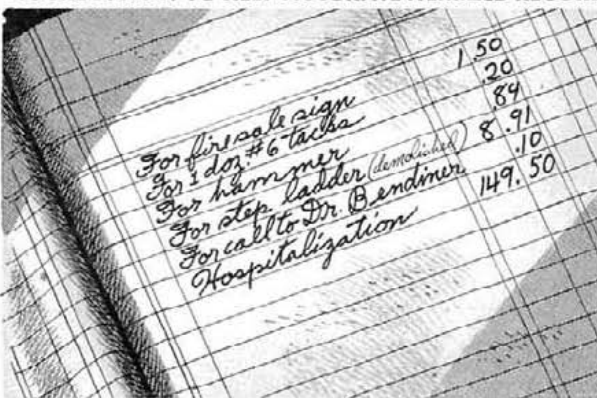 For fire sale sign 1.50
For 1 doz. #6 tacks .20
For hammer .84
For step ladder (demolished) 8.91
For call to Dr. Bendiner .10
Hospitalization 149.50